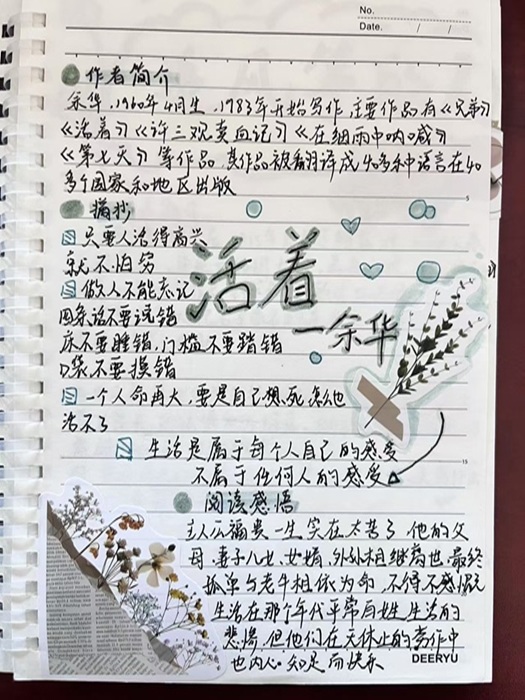 No.
Date. / /
作者简介
余华，1960年4月生，1983年开始写作，主要作品有《兄弟》
《活着》《许三观卖血记》《在细雨中呐喊》
《第七天》等作品，其作品被翻译成40多种语言在40
多个国家和地区出版
摘抄
只要人活得高兴
就不怕穷
做人不能忘记
四条话不要说错
床不要睡错，门槛不要踏错
口袋不要摸错
活着
—余华
一个人命再大，要是自己想死，怎么也
活不了
生活是属于每个人自己的感受
不属于任何人的感受
阅读感悟
主人公福贵一生实在太苦了，他的父
母、妻子儿女、女婿、外孙相继离世，最终
孤单与老牛相依为命，不得不感慨
生活在那个年代平常百姓生活的
悲惨，但他们在无休止的劳作中
也内心知足而快乐
DEERYU
5
15